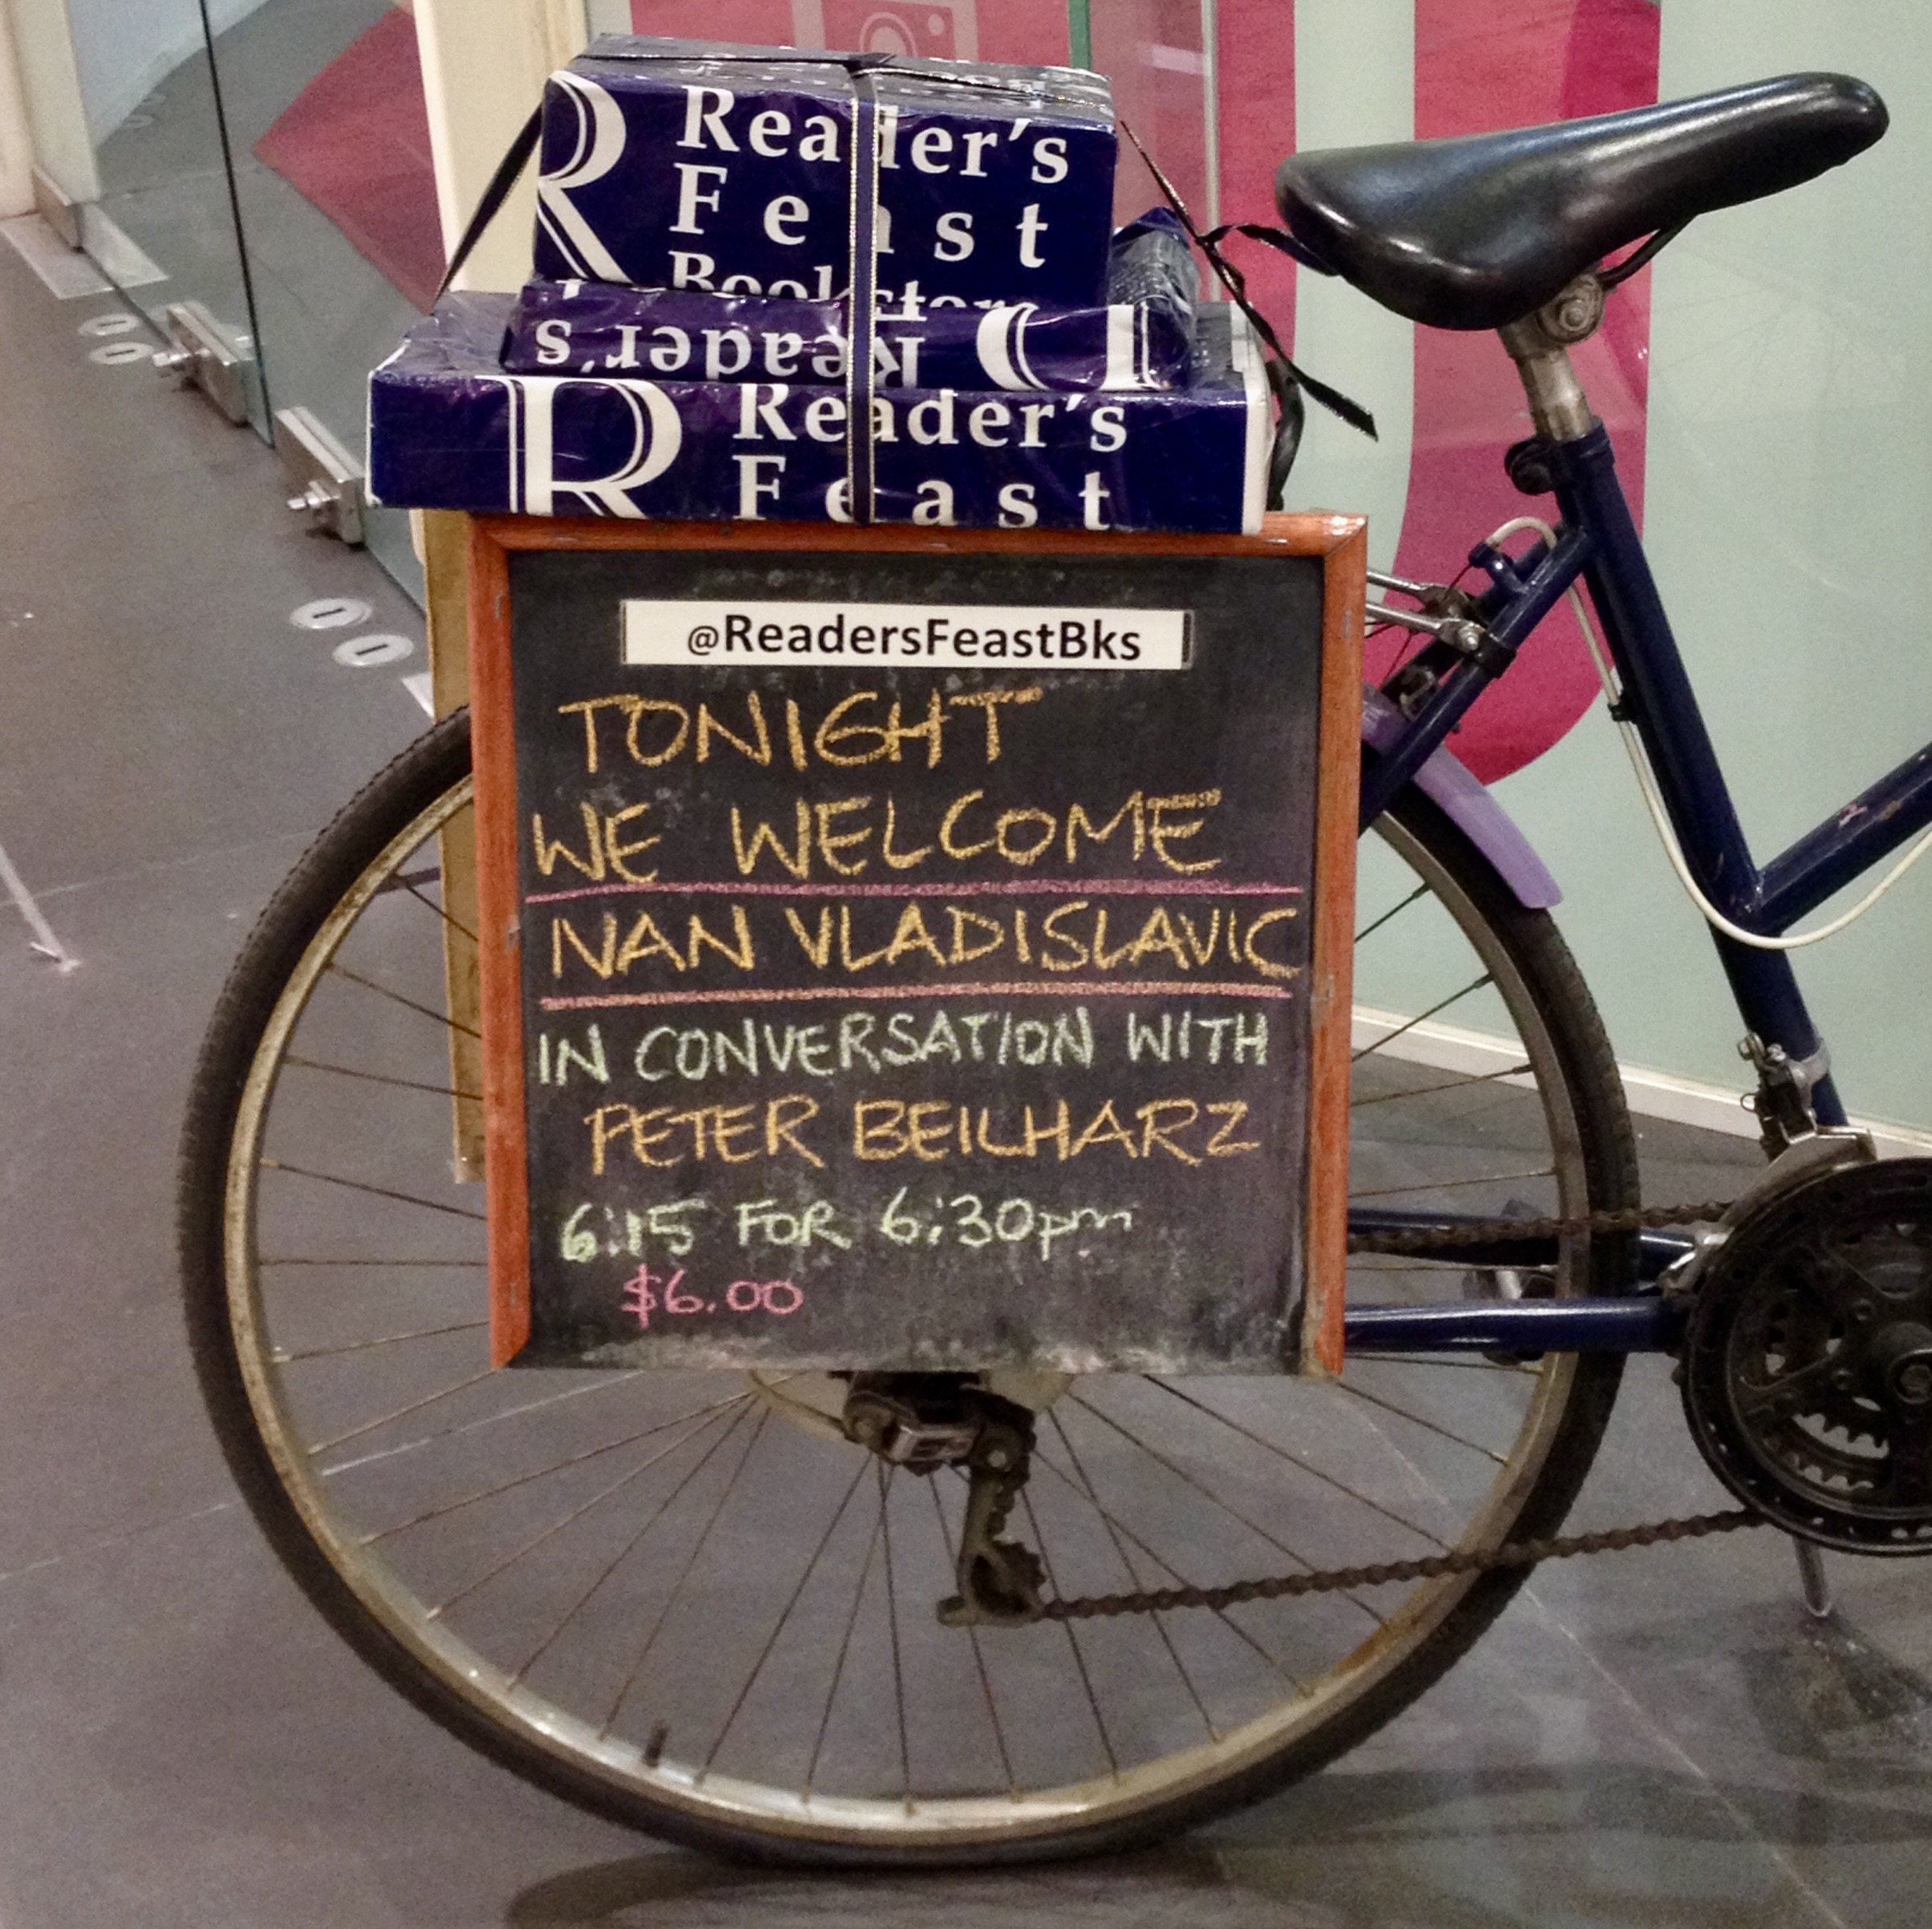 R Reader's
Feast
Bookstore
Reader's
R Reader's
Feast
@ReadersFeastBks
TONIGHT
WE WELCOME
IVAN VLADISLAVIC
IN CONVERSATION WITH
PETER BEILHARZ
6:15 FOR 6:30pm
$6.00